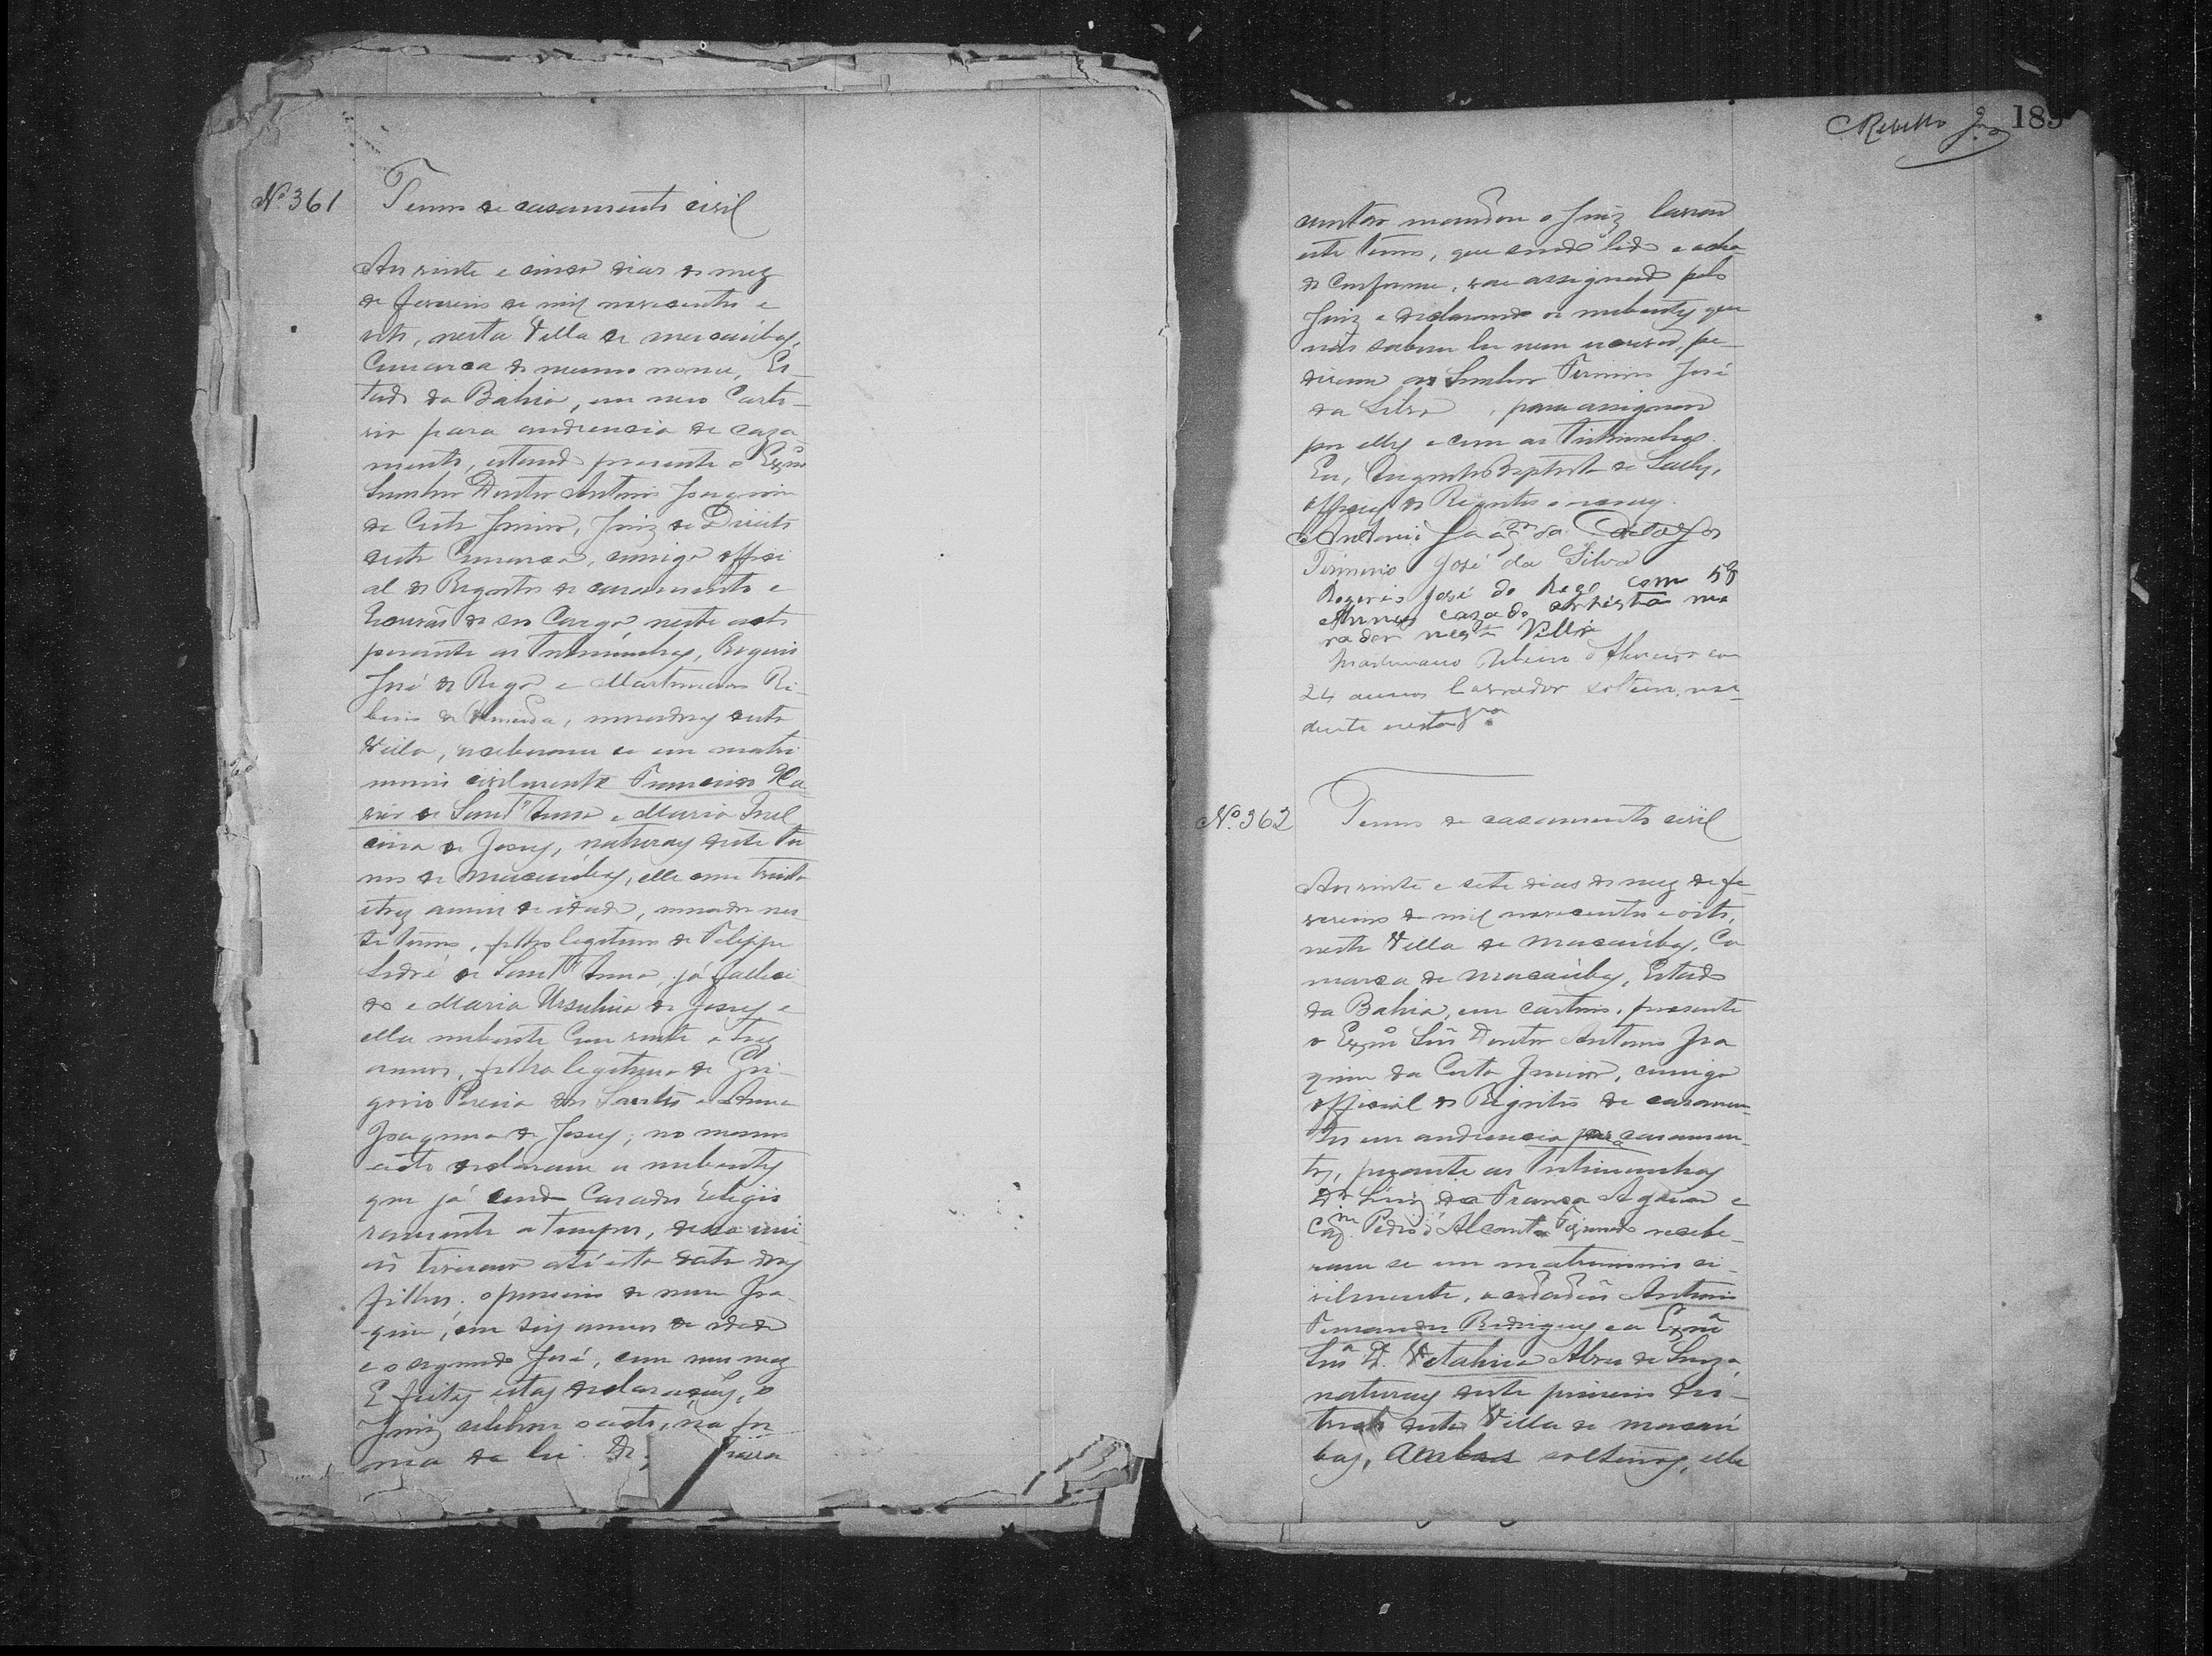 Nº 361
Termo de casamento civil
Aos vinte e cinco dias do mez
de fevereiro de mil novecentos e
oito, nesta Villa de Macaúbas,
Comarca do mesmo nome, Es-
tado da Bahia, em meo Carto-
rio para audiencia de caza-
mento, estando presente o Exmo
Senhor Doutor Antonio Joaquim
da Costa Junior, Juiz de Direito
desta Comarca, comigo offici
al do Registro de casamento e
Escrivão de seo Cargo neste acto
perante as testimunhas, Rogerio
José do Rego e Martiniano Ri-
beiro de Almeida, moradores nesta
Villa, receberam se em matri
monio civilmente Francisco
de Sant'Anna e Maria
de Jesus, naturaes deste Ter
mo de Macaúbas, elle com trinta
e trez annos de idade, morador nes-
te termo, filho legitimo de Felippe
André de Sant'Anna, já falleci
do e Maria Ursulina de Jesus e
ella nubente com vinte e trez
annos, filha legitima de Gri-
gorio Pereira dos Santos e Anna
Joaquina de Jesus; no mesmo
acto declararam os nubentes
que já sendo Casados Religio
samente a tempos, dessa uni-
ão tiveram até esta data dois
filhos; o primeiro de nome Joa-
quim, com seis annos de idade
e o segundo José, com um mez
E feitas estas declarações, o
Juiz celebrou o acto, na for
ma da lei. De
Rebello 185
constar mandou o Juiz lavrar
este termo, que sendo lido e acha-
do conforme, vae assignado pelo
Juiz e declarando os nubentes que
não sabem ler nem escrever, pe-
diram ao Senhor Firmino José
da Silva, para assignar
por elles e com as testimunhas.
Eu, Augusto Baptista de Salles,
official do Registro o escrevy.
Antonio Joaqm da Costa Jor
Firmino José da Silva
Rogerio José do Rego com 58
Annos cazado artista mo
rador nesta Villa
Martiniano Ribeiro d'Almeida com
24 annos lavrador solteiro resi-
dente nesta
Nº 362
Termo de casamento civil
Aos vinte e sete dias do mez de fe-
vereiro de mil novecentos e oito,
nesta Villa de Macaúbas, Co
marca de Macaúbas, Estado
da Bahia, em cartorio, presente
o Exmo Snr Doutor Antonio Joa
quim da Costa Junior, comigo
official do Registro de casamen-
tos em audiencia para casamen-
tos, perante as testimunhas
Dr Luiz da França e
Capm Pedro d'Alcantara recebe-
ram se em matrimonio ci-
vilmente, o cidadão Antonio
Fernandes Rodrigues e a Exma
Snra D. Abreu de Souza,
naturaes deste primeiro dis-
tricto desta Villa de Macaú
bas, Ambos solteiros, elle